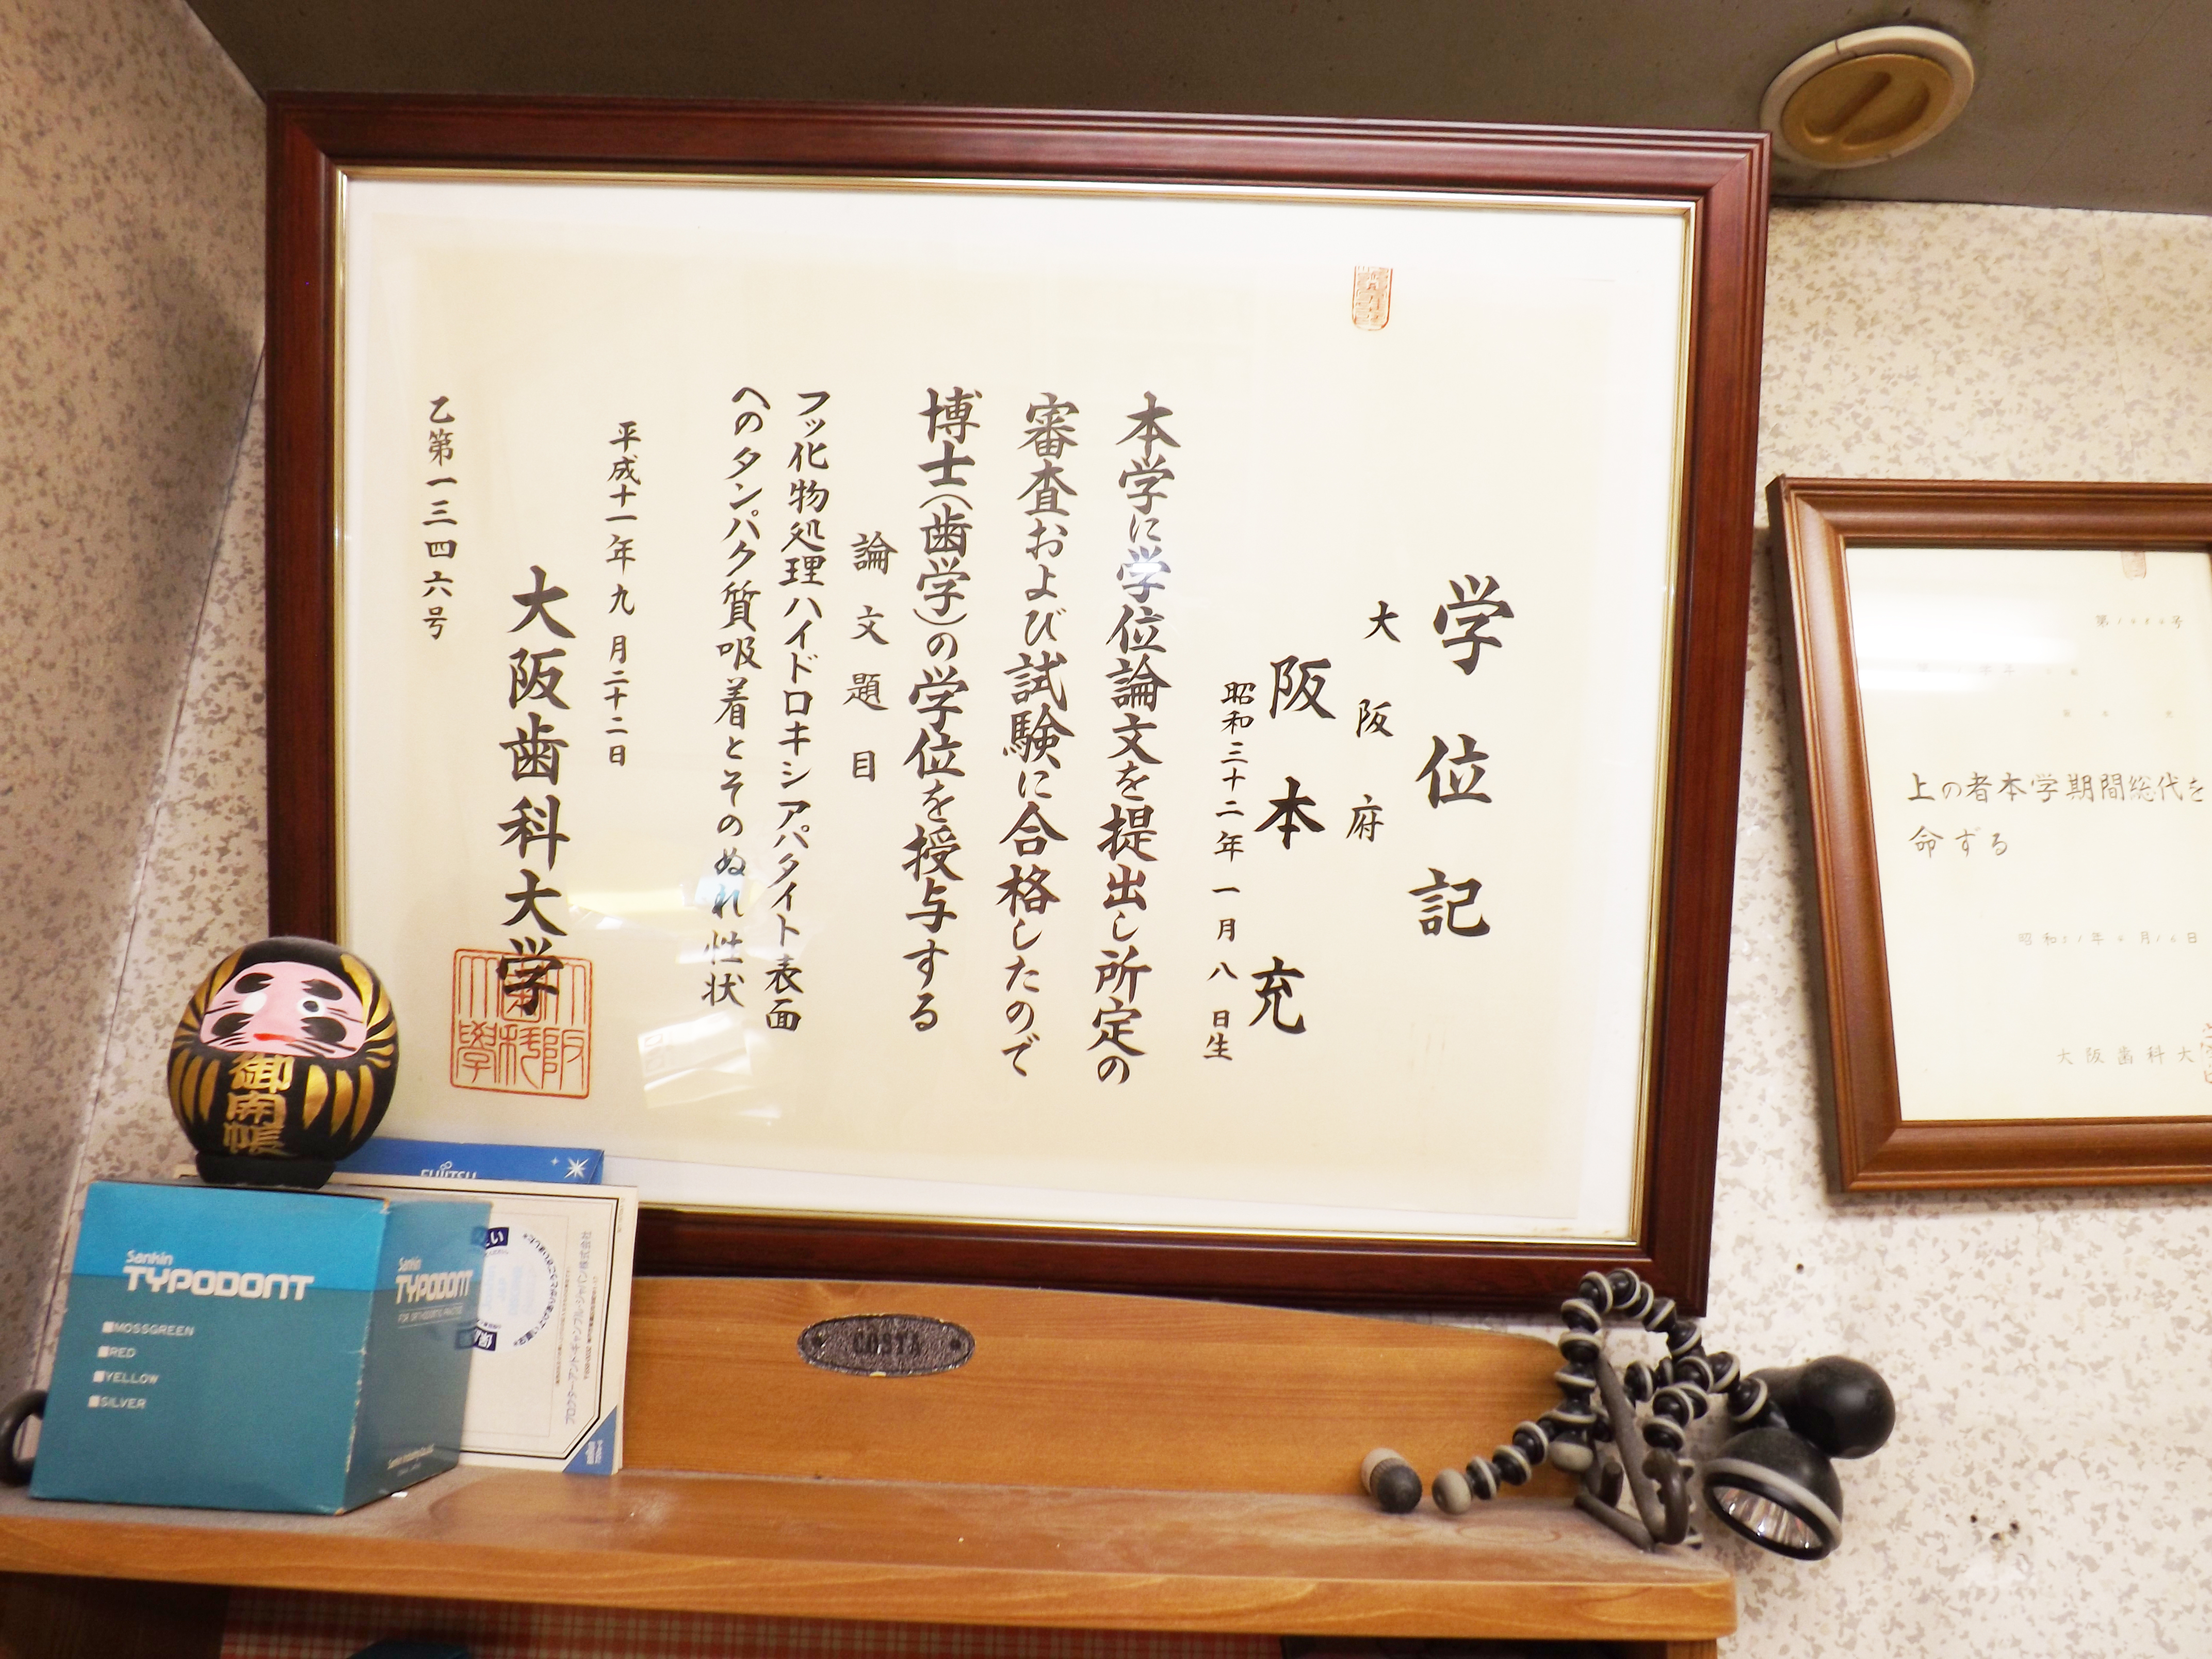 学位記
大阪府
阪本充
昭和三十二年一月八日生
本学に学位論文を提出し所定の
審査および試験に合格したので
博士(歯学)の学位を授与する
論文題目
フッ化物処理ハイドロキシアパタイト表面
へのタンパク質吸着とそのぬれ性状
平成十一年九月二十二日
大阪歯科大学
乙第一三四六号
上の者本学期間総代を
命ずる
大阪歯科大
御開帳
FUJITSU
Sankin
TYPODONT
MOSSGREEN
RED
YELLOW
SILVER
Sankin
TYPODONT
プロクター・アンド・ギャンブル・ジャパン株式会社
COSTA